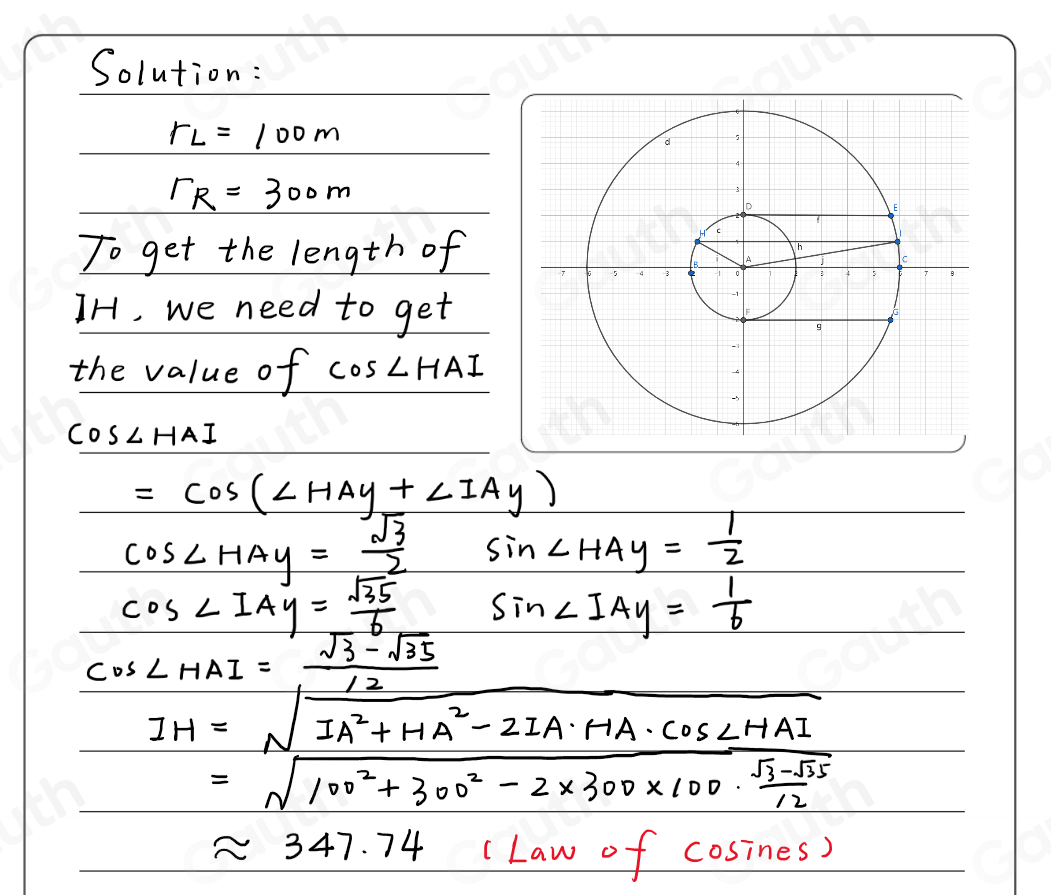 Solution:
rL = 100m
rR = 300m
To get the length of
IH, we need to get
the value of cos∠HAI
cos∠HAI
= cos(∠HAy + ∠IAy)
cos∠HAy = √3/2    sin∠HAy = 1/2
cos∠IAy = √35/6    sin∠IAy = 1/6
cos∠HAI = (√3-√35)/12
IH = √(IA²+HA²-2IA·HA·cos∠HAI)
= √(100²+300²-2×300×100·(√3-√35)/12)
≈ 347.74 (Law of cosines)
6
d
5
4
3
D 2 f E
H c 1 h I
B i A j C
-7 -6 -5 -4 -3 -2 -1 0 1 2 3 4 5 6 7 8
-1
F -2 g G
-3
-4
-5
-6
Gauth